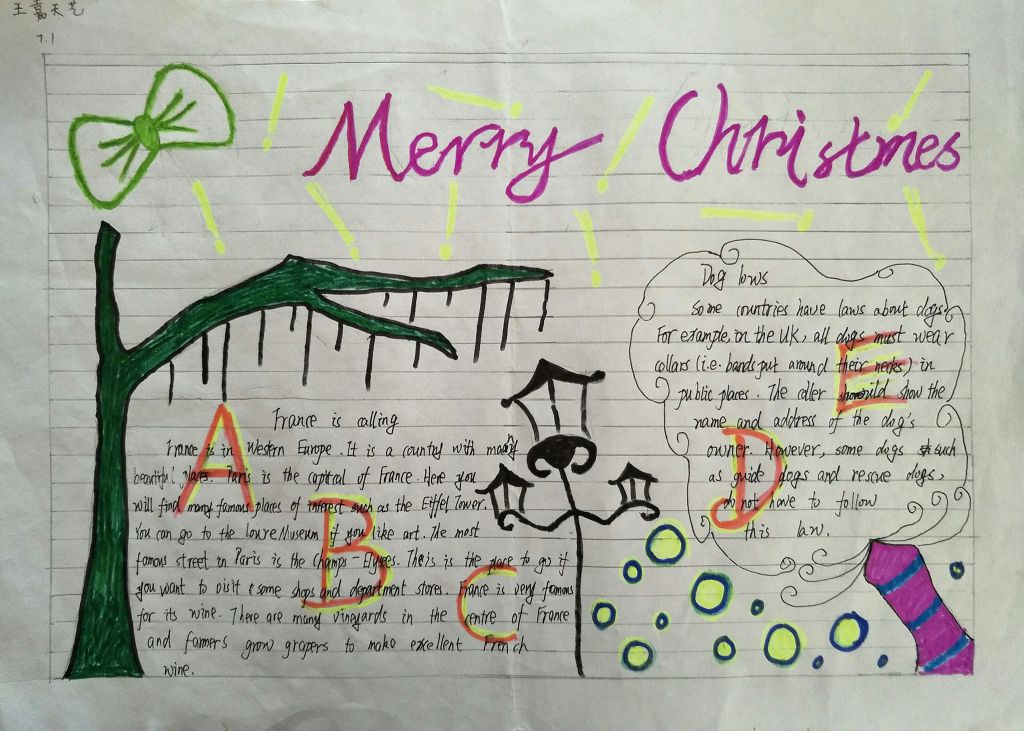 王嘉天艺
7.1
Merry Christmes
Dog laws
Some countries have laws about dogs.
For example, in the UK, all dogs must wear
collars (i.e. bands put around their necks) in
public places. The coller should show the
name and address of the dog's
owner. However, some dogs such
as guide dogs and rescue dogs,
do not have to follow
this law.
France is calling
France is in Western Europe. It is a country with many
beautiful places. Paris is the capital of France. Here you
will find many famous places of interest such as the Eiffel Tower.
You can go to the Louvre Museum if you like art. The most
famous street in Paris is the Champs-Elysees. This is the place to go if
you want to visit some shops and department stores. France is very famous
for its wine. There are many vineyards in the centre of France
and farmers grow grapers to make excellent French
wine.
A
B
C
D
E